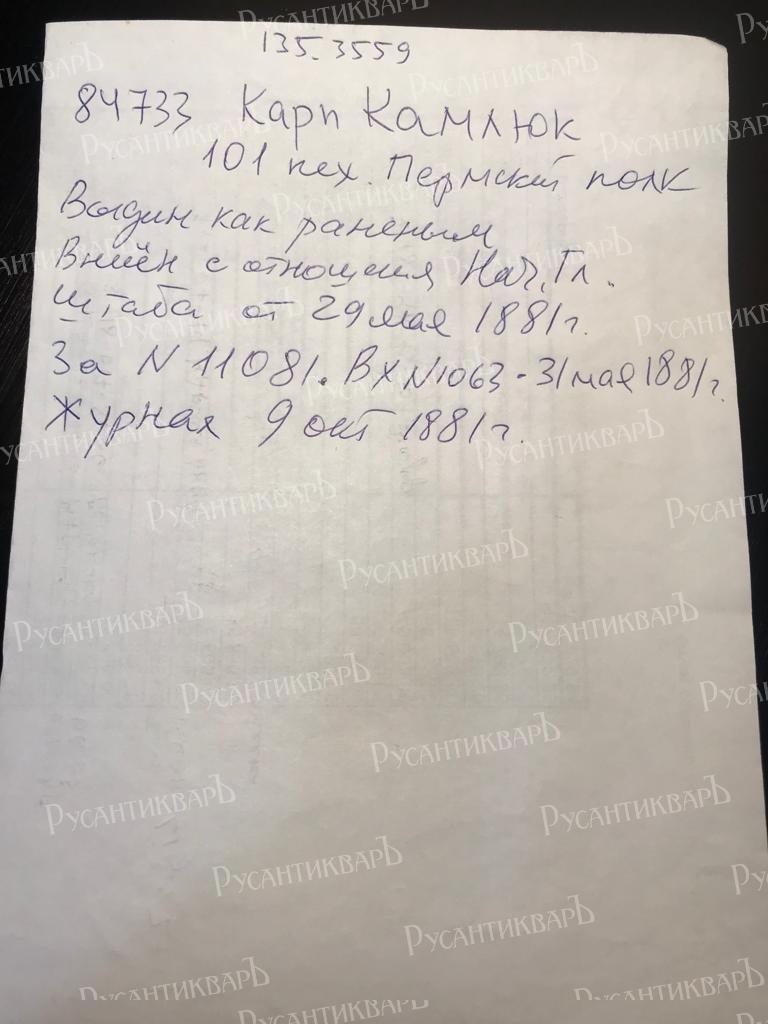 135.3559
84733 Карп Камлюк
101 пех. Пермский полк
Выдин как раненым
Вннён с отношения Нач. Гл.
штаба от 29 мая 1881 г.
За N 11081. Вх N 1063 - 31 мая 1881 г.
Журнал 9 окт 1881 г.
РусантикварЪ